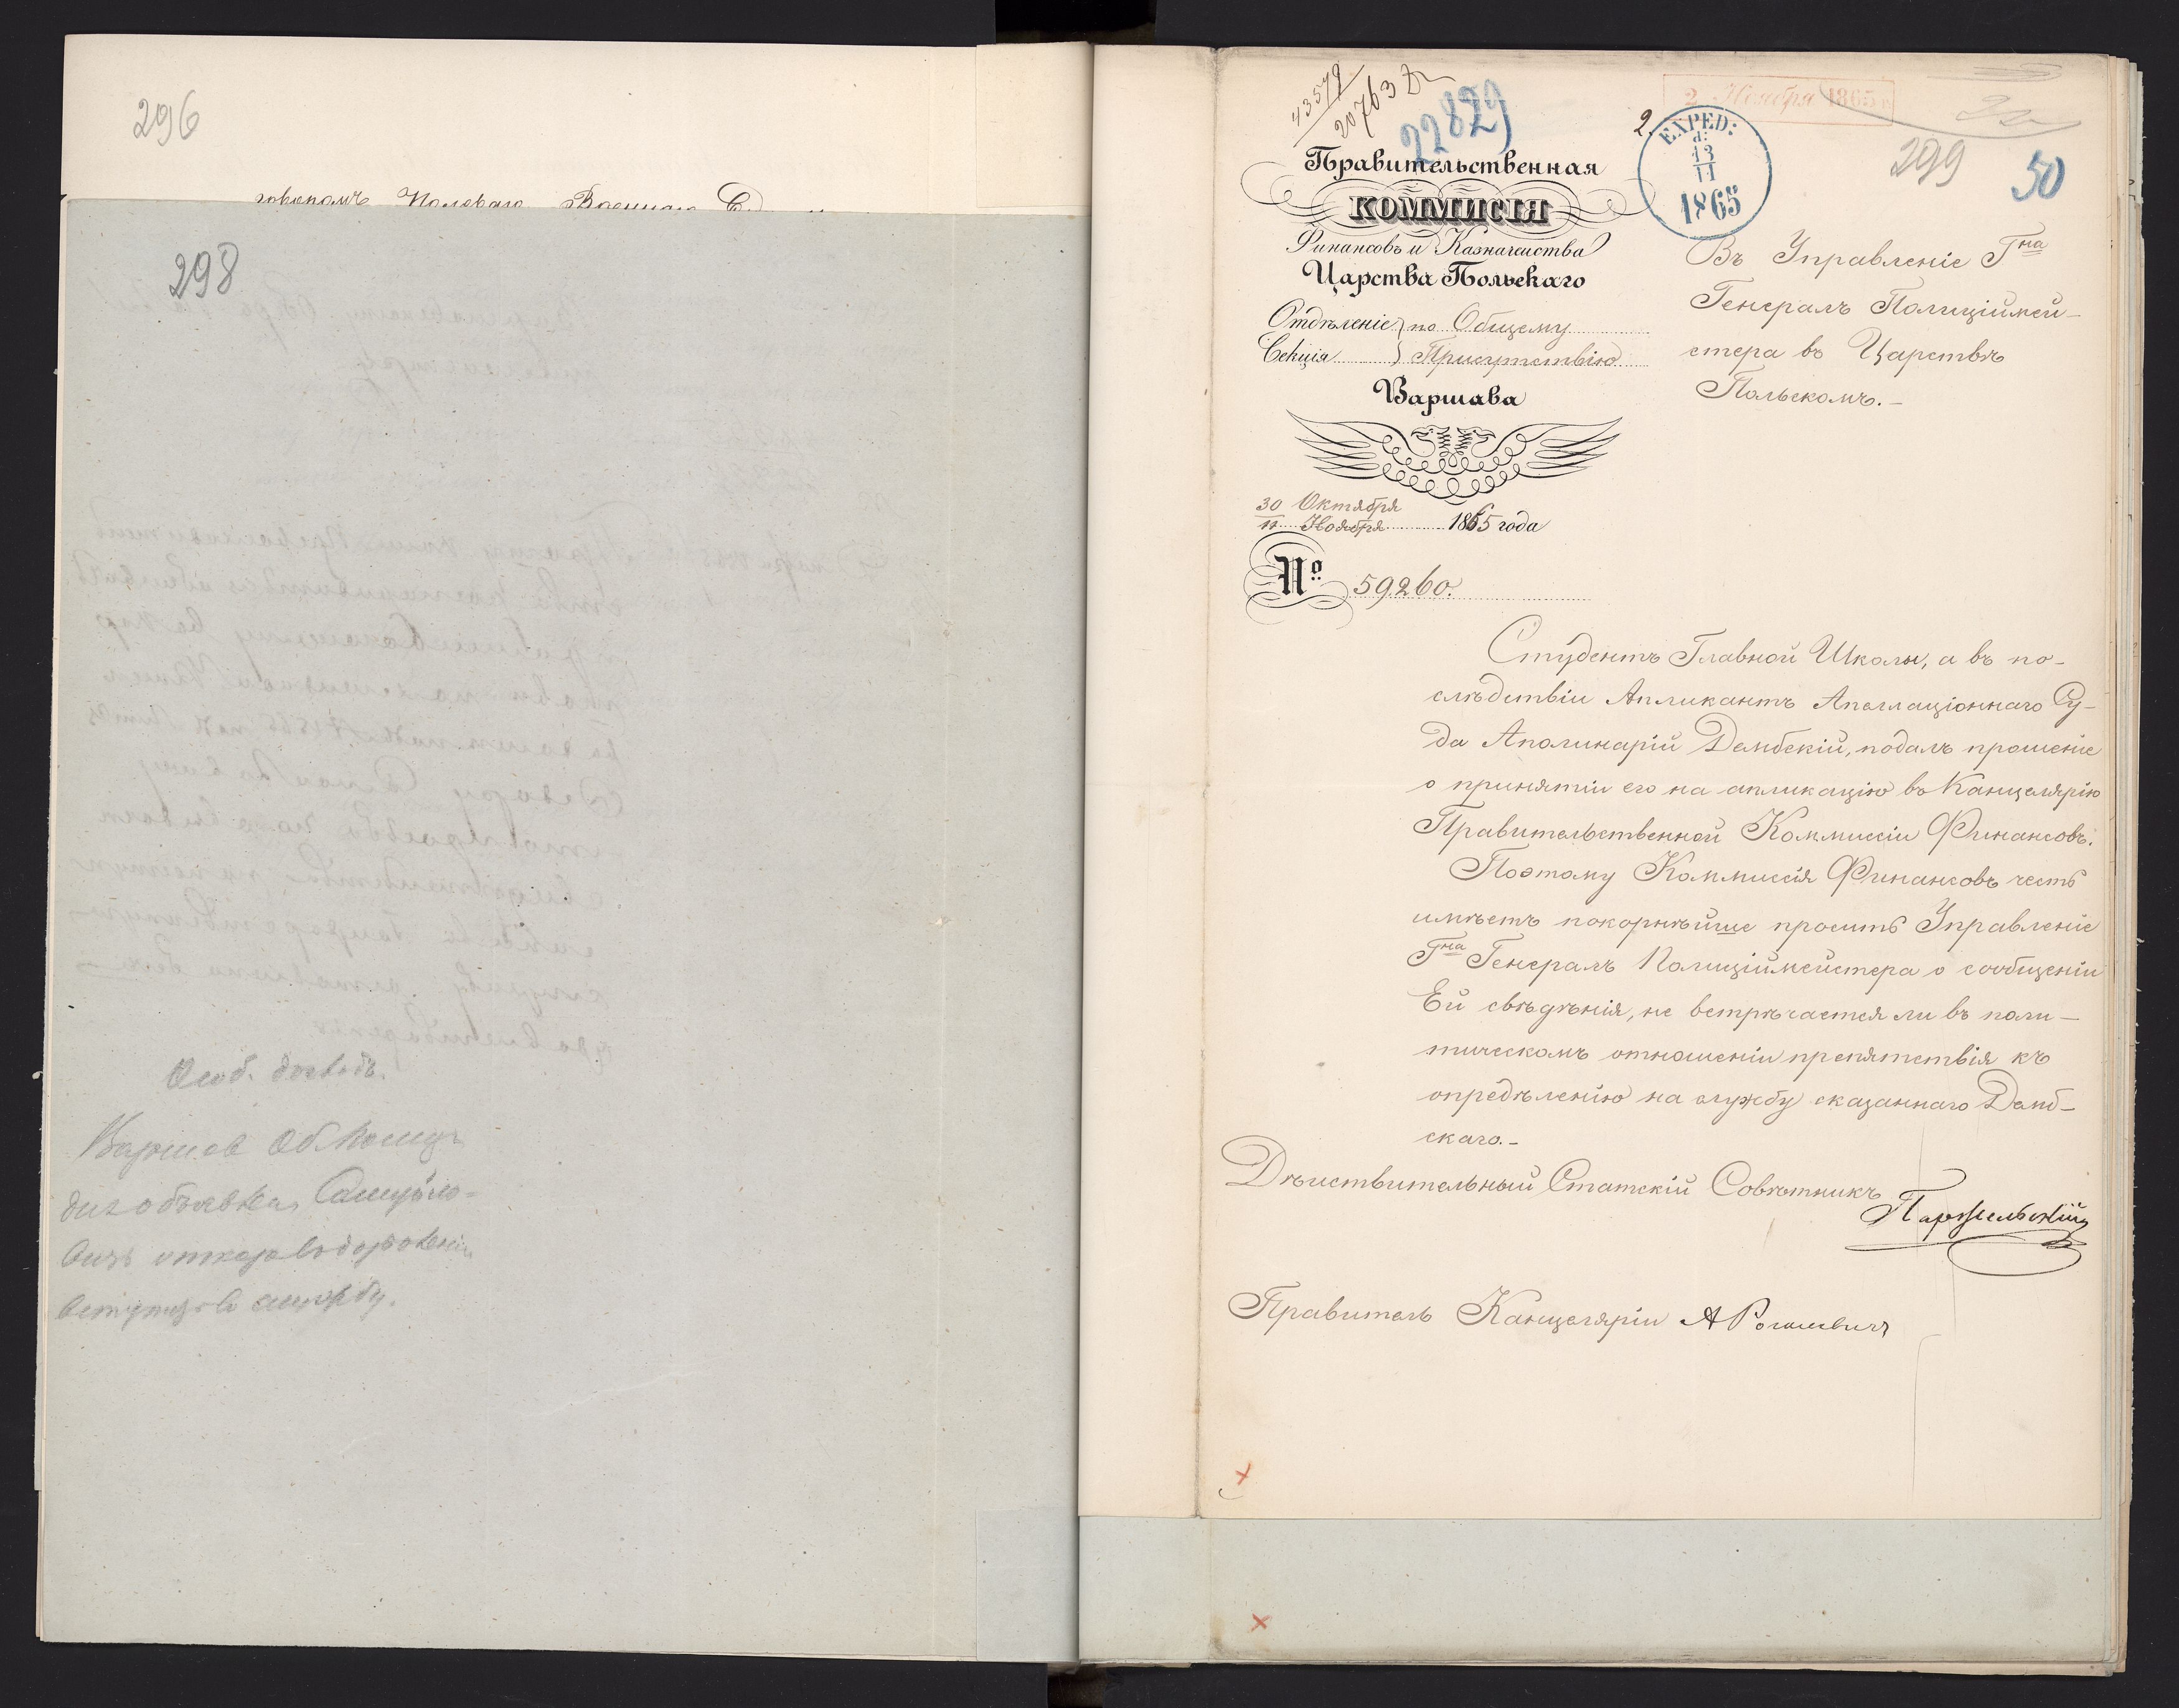 296
298
Варшав
отказ
службу.
43579
20763
22829
2 Ноября 1865 г
2.
EXPED:
d:
13
11
1865
299
50
Правительственная
КОММИСІЯ
Финансовъ и Казначейства
Царства Польскаго
Отдѣленіе } по Общему
Секція } Присутствію
Варшава
30 Октября
11 Ноября 1865 года
№ 59260.
Въ Управленіе Гна
Генералъ Полиціймей-
стера въ Царствѣ
Польскомъ.-
Студентъ Главной Школы, а въ по-
слѣдствіи Апликантъ Апелляціоннаго Су-
да Аполинарій Дембскій, подалъ прошеніе
о принятіи его на апликацію въ Канцелярію
Правительственной Коммиссіи Финансовъ.
Поэтому Коммиссія Финансовъ честь
имѣетъ покорнѣйше просить Управленіе
Гна Генералъ Полиціймейстера о сообщеніи
Ей свѣдѣнія, не встрѣчается ли въ поли-
тическомъ отношеніи препятствія къ
опредѣленію на службу сказаннаго Демб-
скаго.-
Дѣйствительный Статскій Совѣтникъ
Правитель Канцеляріи А